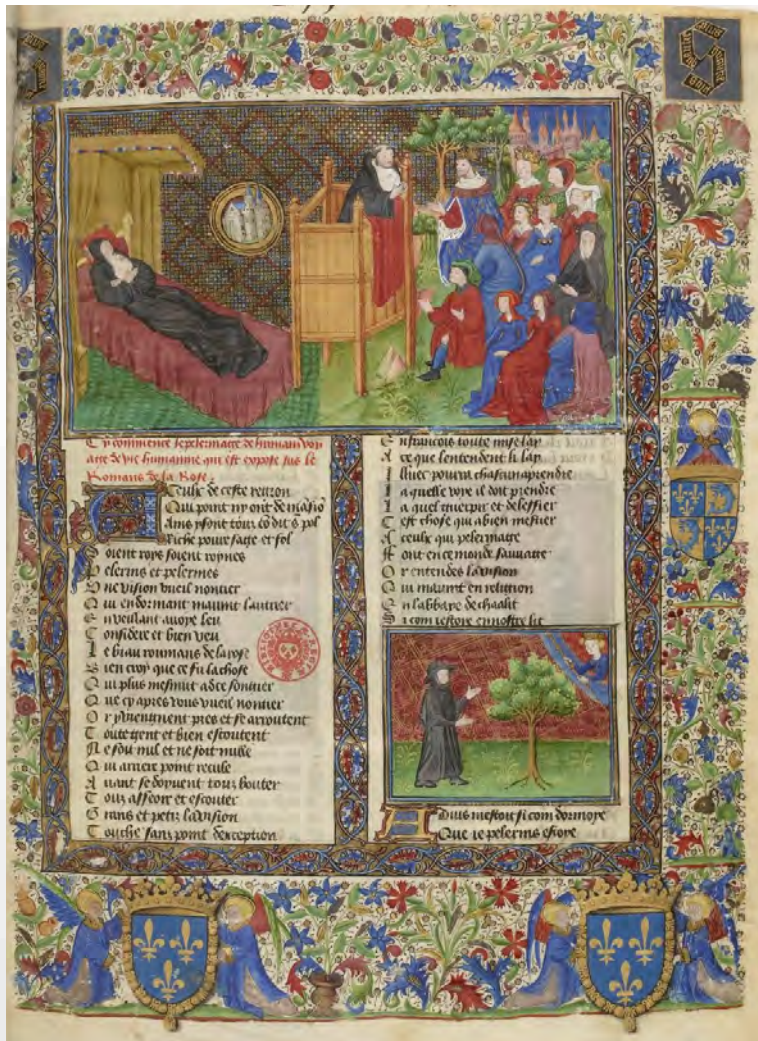 Cy commence le pelermage de humain voy
age de vie humaine qui est expose sus le
Romans de la Rose.
A Ceulx de ceste region
Qui point ny ont de mãsiõ
Ains y sont tous cõ dit s pol
Riche poure sage et fol
Soient roys soient roynes
Pelerins et pelerines
Une vision vueil noncier
Qui en dormant mavint lautrier
En veillant avoye leu
Considere et bien veu
Le biau roumans de la rose
Bien croy que ce fu la chose
Qui plus mesmut a ce songier
Que cy apres vous vueil noncier
Or y viengnent pres et se arroutent
Toute gent et bien escoutent
Ne soit nul et ne soit nulle
Qui arriere point recule
Avant se doyvent touz bouter
Touz asseoir et escouter
Grans et petiz la vision
Touche sanz point dexception
En francois toute mise lay
A ce que lentendent li lay
Illuec pourra chascun aprendre
La quelle voye il doit prendre
La quel guerpir et delessier
Cest chose qui a bien mestier
A ceulx qui pelermage
Font en ce monde sauvage
Or entendes la vision
Qui mavint en religion
En labbaye de chaalit
Si com jestoye en mostre lit
Advis mestoit si com dormoye
Que je pelerins estoye